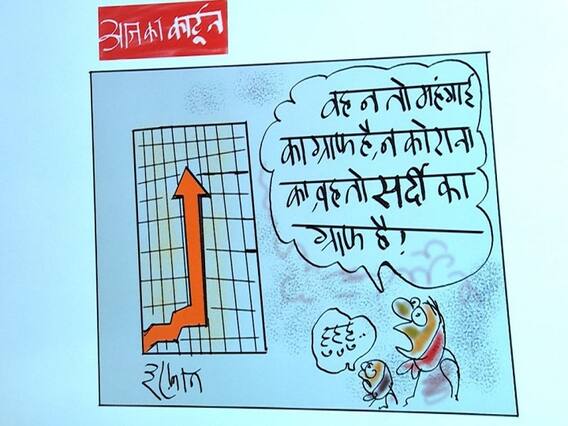 आज का कार्टून
वह न तो महंगाई
का ग्राफ है, न कोरोना
का, वह तो सर्दी का
ग्राफ है!
इरफान